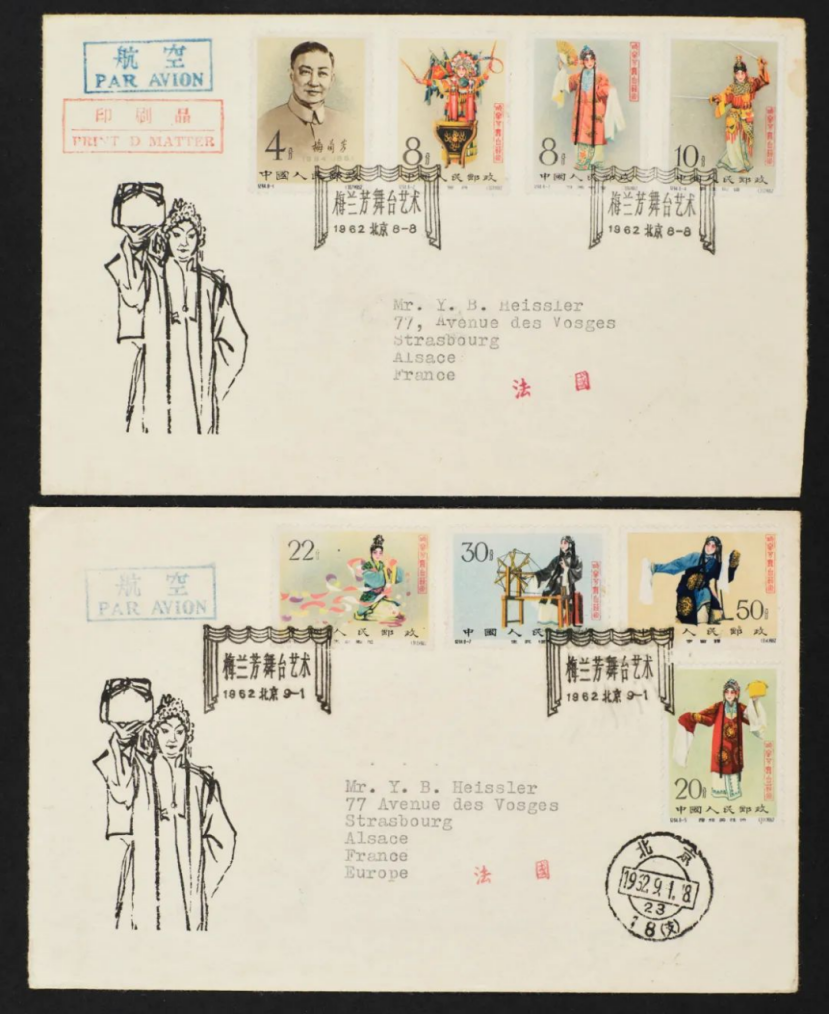 航空
PAR AVION
印刷品
PRINT D MATTER
4分
梅兰芳
中國人民郵政
8分
8分
中國人民郵政
10分
中國人民郵政
梅兰芳舞台艺术
1962 北京 8-8
梅兰芳舞台艺术
1962 北京 8-8
Mr. Y. B. Heissler
77, Avenue des Vosges
Strasbourg
Alsace
France
法國
航空
PAR AVION
22分
人民郵政
30分
中國人民郵政
50分
人民郵政
梅兰芳舞台艺术
1962 北京 9-1
梅兰芳舞台艺术
1962 北京 9-1
20分
中國人民郵政
Mr. Y. B. Heissler
77 Avenue des Vosges
Strasbourg
Alsace
France
Europe
法國
北京
23
18(支)